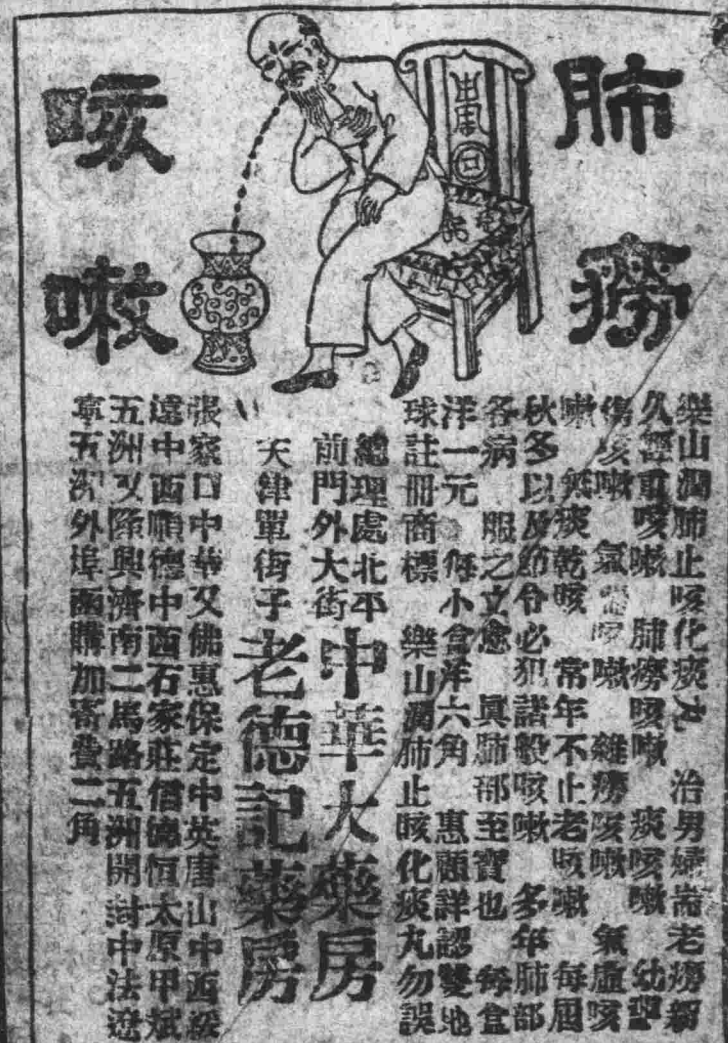 肺癆
咳嗽
樂山潤肺止咳化痰丸 治男婦崙老癆細
久輕重咳嗽 肺癆咳嗽 痰咳嗽 幼
傷咳嗽 氣喘咳嗽 雜癆咳嗽 氣虛咳
嗽 無痰乾咳 常年不止老咳嗽 每屆
秋多以及節令必犯諸般咳嗽 多年肺部
各病 服之立愈 眞肺部至寶也 每盒
洋一元 每小盒洋六角 惠顧詳認雙地
球註冊商標 樂山潤肺止咳化痰丸勿誤
總理處北平
前門外大街
中華大藥房
天津單街子
老德記藥房
張家口中華又佛惠保定中英唐山中西綏
遠中西順德中西石家莊信德恒太原甲斌
五洲又隆興濟南二馬路五洲開封中法遼
寧五洲外埠函購加寄費二角